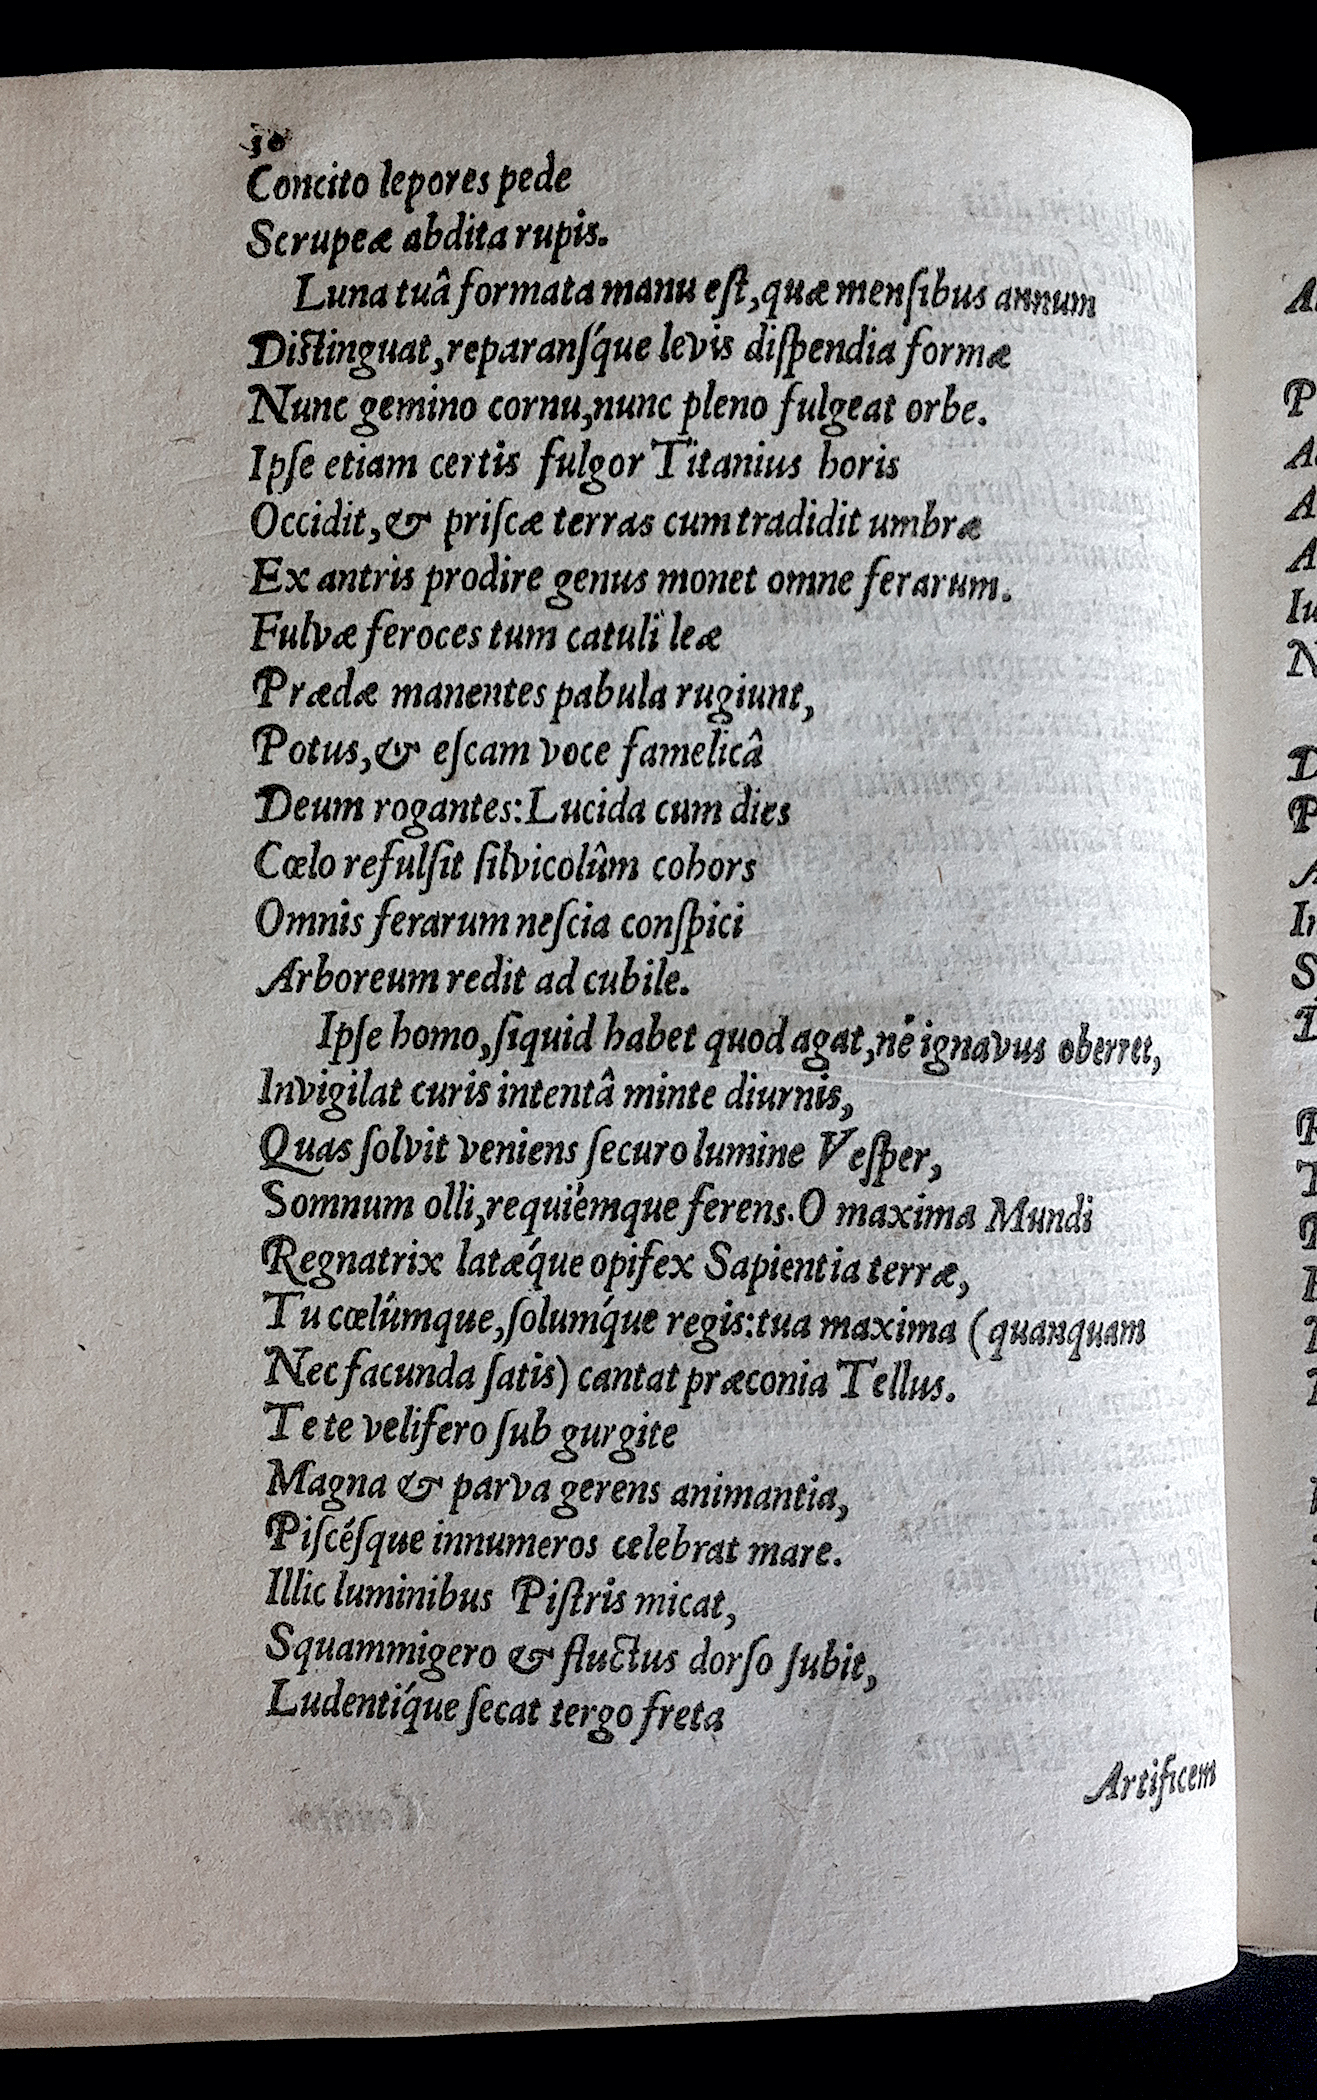 30
Concito lepores pede
Scrupeæ abdita rupis.
Luna tuâ formata manu eſt, quæ menſibus annum
Diſtinguat, reparanſq́ue levis diſpendia formæ
Nunc gemino cornu, nunc pleno fulgeat orbe.
Ipſe etiam certis fulgor Titanius horis
Occidit, & priſcæ terras cum tradidit umbræ
Ex antris prodire genus monet omne ferarum.
Fulvæ feroces tum catuli leæ
Prædæ manentes pabula rugiunt,
Potus, & eſcam voce famelicâ
Deum rogantes: Lucida cum dies
Cœlo refulſit ſilvicolûm cohors
Omnis ferarum neſcia conſpici
Arboreum redit ad cubile.
Ipſe homo, ſiquid habet quod agat, nè ignavus oberret,
Invigilat curis intentâ minte diurnis,
Quas ſolvit veniens ſecuro lumine Veſper,
Somnum olli, requiémque ferens. O maxima Mundi
Regnatrix latæq́ue opifex Sapientia terræ,
Tu cœlúmque, ſolumq́ue regis: tua maxima (quanquam
Nec facunda ſatis) cantat præconia Tellus.
Te te velifero ſub gurgite
Magna & parva gerens animantia,
Piſcéſque innumeros celebrat mare.
Illic luminibus Piſtris micat,
Squammigero & fluctus dorſo ſubit,
Ludentiq́ue ſecat tergo freta
Artificem